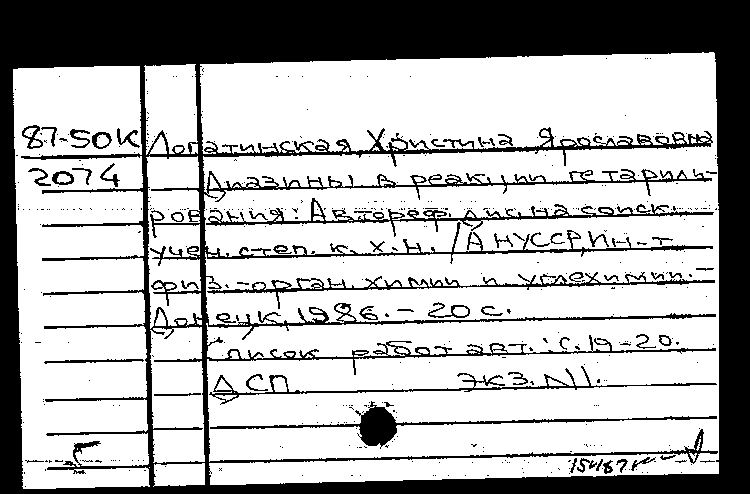 87-50К Лопатинская, Христина Ярославовна
2074 Диазины в реакции гетарили-
рования: Автореф. дис. на соиск.
учен. степ. к. х. н. / АН УССР, Ин-т
физ.-орган. химии и углехимии. -
Донецк, 1986. - 20 с.
Список работ авт.: с. 19-20.
ДСП Экз. N1.